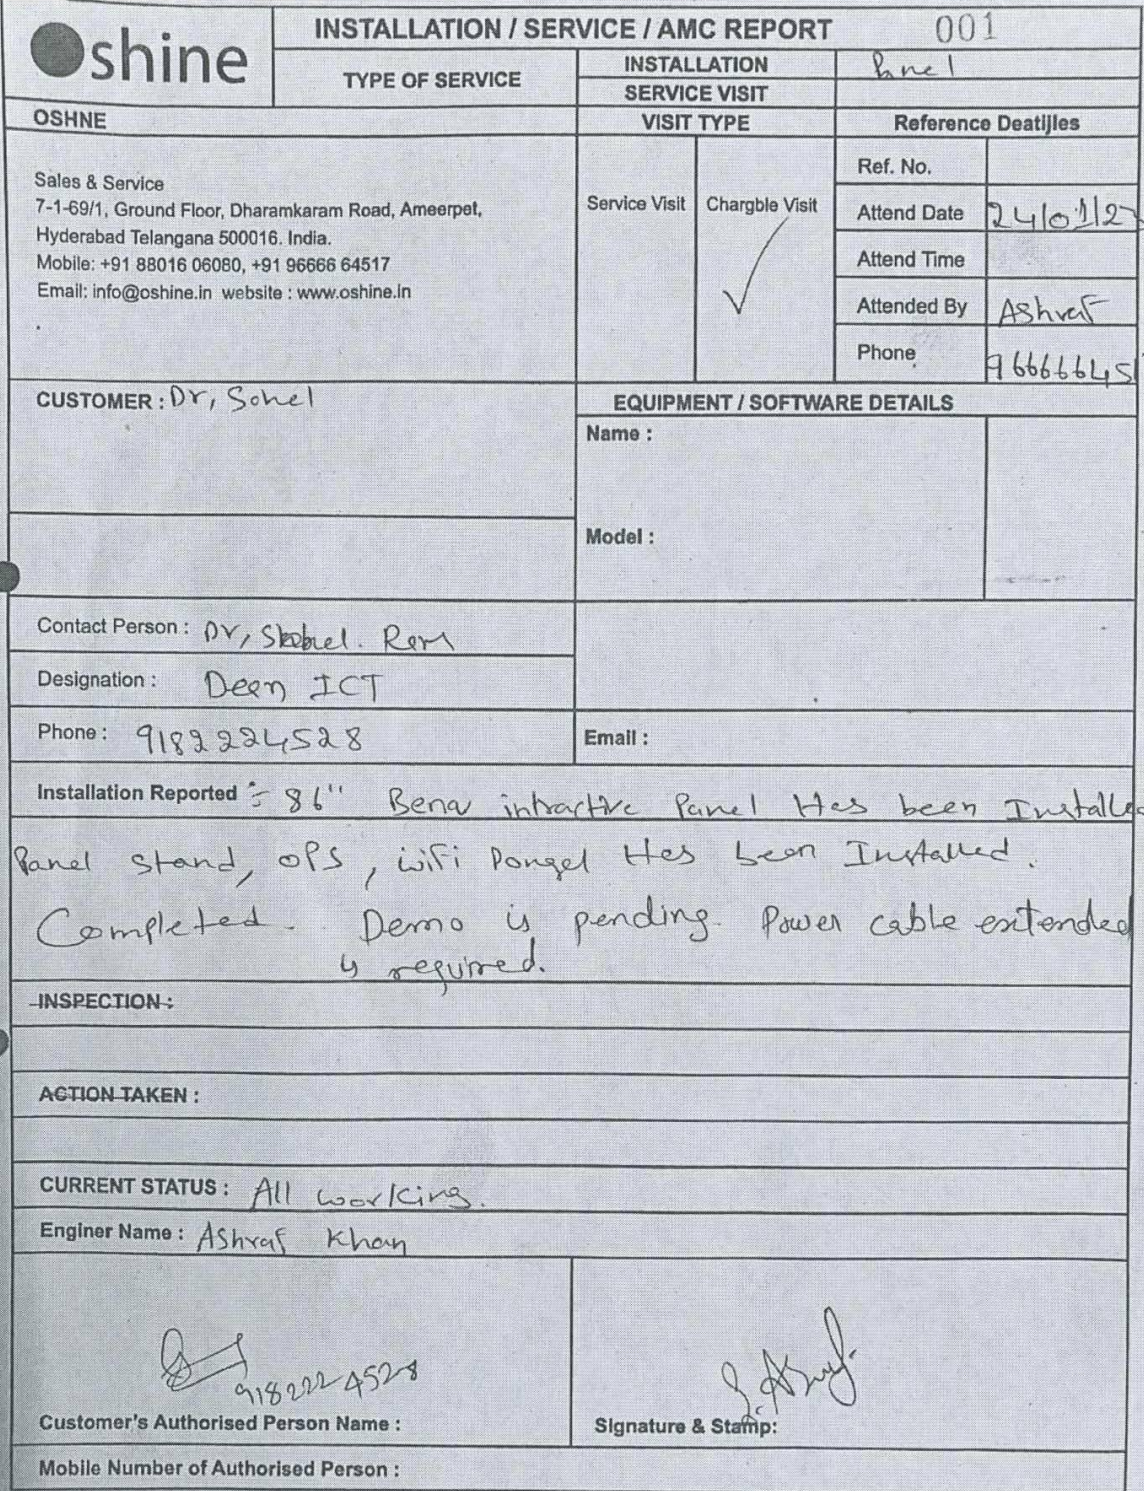 Oshine
INSTALLATION / SERVICE / AMC REPORT 001
TYPE OF SERVICE
INSTALLATION Panel
SERVICE VISIT
OSHNE
VISIT TYPE
Reference Deatijles
Sales & Service
7-1-69/1, Ground Floor, Dharamkaram Road, Ameerpet,
Hyderabad Telangana 500016. India.
Mobile: +91 88016 06080, +91 96666 64517
Email: info@oshine.in website : www.oshine.in
Service Visit
Chargble Visit ✓
Ref. No.
Attend Date 24/01/2
Attend Time
Attended By Ashraf
Phone 966666451
CUSTOMER : Dr, Sohel
EQUIPMENT / SOFTWARE DETAILS
Name :
Model :
Contact Person : Dr,
Designation : Deen ICT
Phone : 9182224528
Email :
Installation Reported :- 86" Benq intractive Panel Has been Installed
Panel stand, OPS, wifi Dongel Has been Installed.
Completed. Demo is pending. Power cable extended
is required.
INSPECTION :
ACTION TAKEN :
CURRENT STATUS : All working.
Enginer Name : Ashraf Khan
9182224528
Customer's Authorised Person Name :
Signature & Stamp:
Mobile Number of Authorised Person :